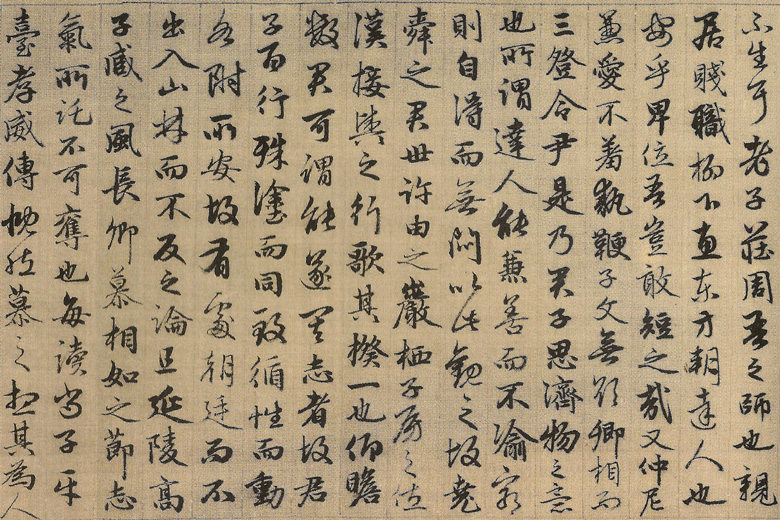 不生耳老子莊周吾之師也親
居賤職柳下惠東方朔達人也
安乎卑位吾豈敢短之哉又仲尼
兼愛不羞執鞭子文無欲卿相而
三登令尹是乃君子思濟物之意
也所謂達人能兼善而不渝窮
則自得而無悶以此觀之故堯
舜之君世許由之巖栖子房之佐
漢接輿之行歌其揆一也仰瞻
數君可謂能遂其志者故君
子百行殊塗而同致循性而動
各附所安故有處朝廷而不
出入山林而不反之論且延陵高
子臧之風長卿慕相如之節志
氣所託不可奪也每讀尚子平
臺孝威傳慨然慕之想其為人